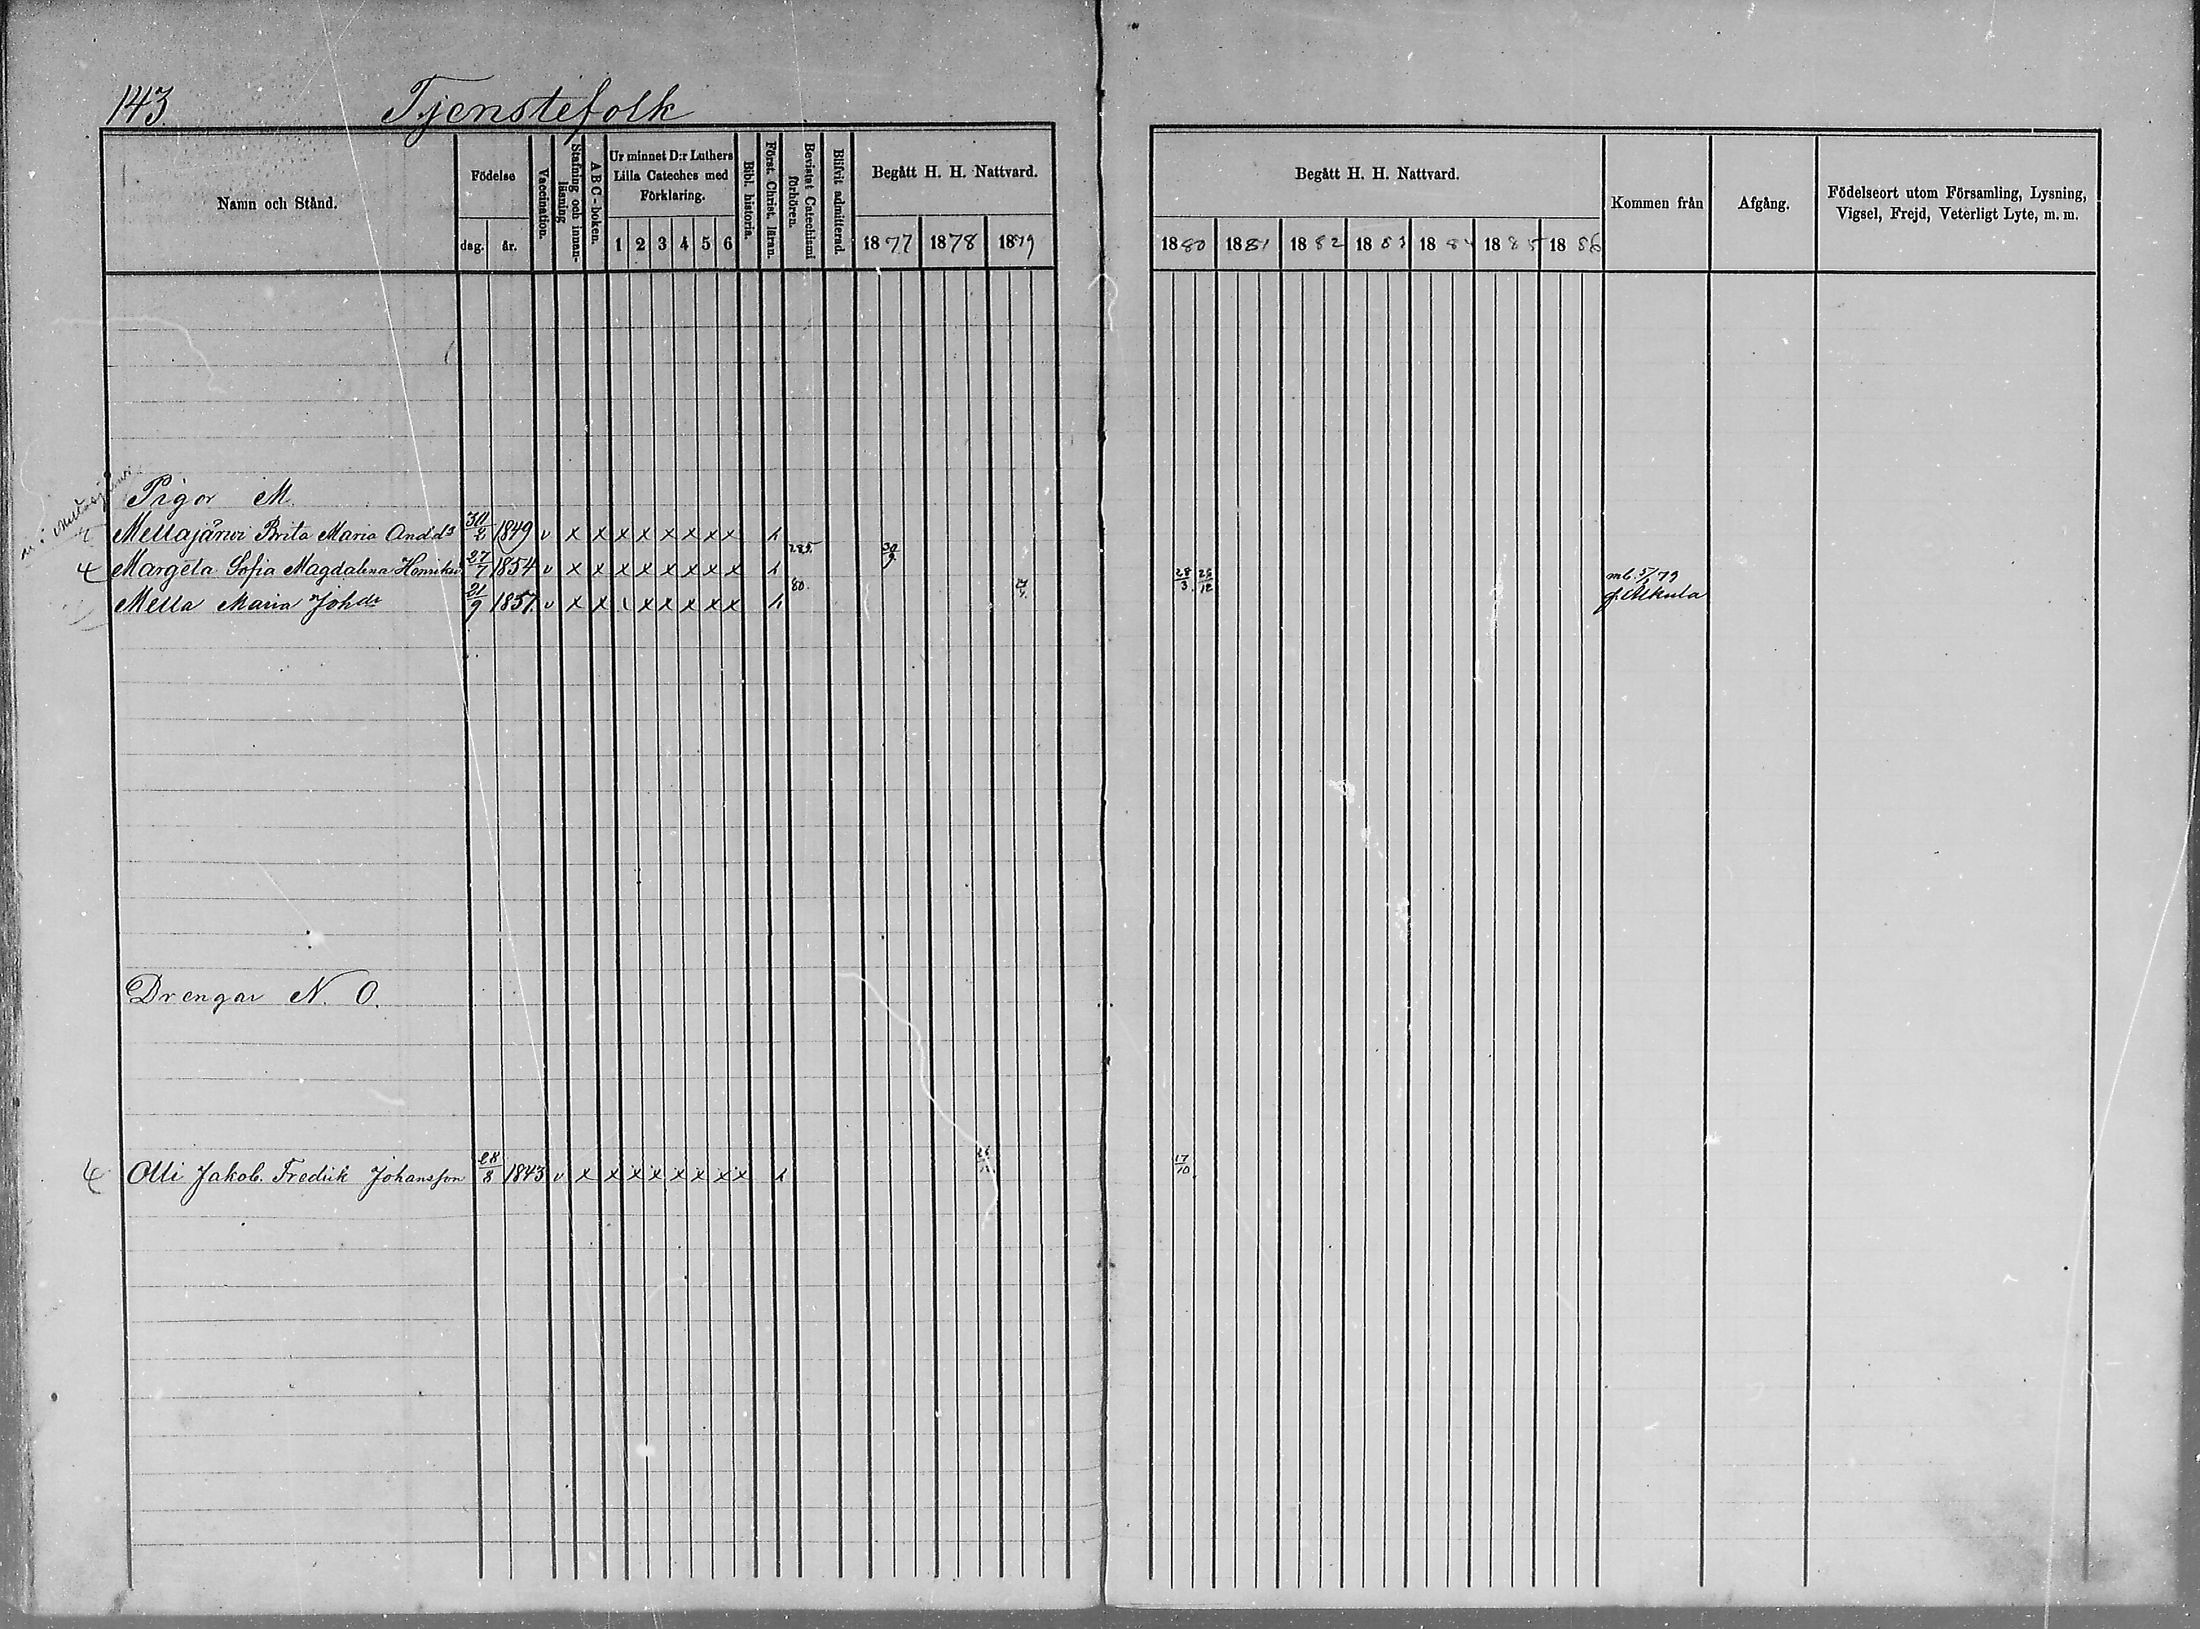 143.
Tjenstefolk
Namn och Stånd.
Födelse
dag. år.
Vaccination.
Stafning och innanläsning
ABC-boken.
Ur minnet D:r Luthers
Lilla Cateches med
Förklaring.
1 2 3 4 5 6
Bibl. historia.
Först. Christ. läran.
Bevistat Catechismi förhören.
Blifvit admitterad.
Begått H. H. Nattvard.
1877 1878 1879
Begått H. H. Nattvard.
1880 1881 1882 1883 1884 1885 1886
Kommen från
Afgång.
Födelseort utom Församling, Lysning,
Vigsel, Frejd, Veterligt Lyte, m. m.
Pigor M.
Mellajärwi Brita Maria Andds 30/2 1849 v x x x x x x x x
Margeta Sofia Magdalena Henriksd 27/7 1854 v x x x x x x x x 30/9 28/3 26/12 mb. 5/79
Mella Maria Johdr 21/9 1857. v x x x x x x x 80. f. Alkula
Drengar N. O.
Olli Jakob Fredrik Johansson 28/8 1843 v x x x x x x x x 17/10